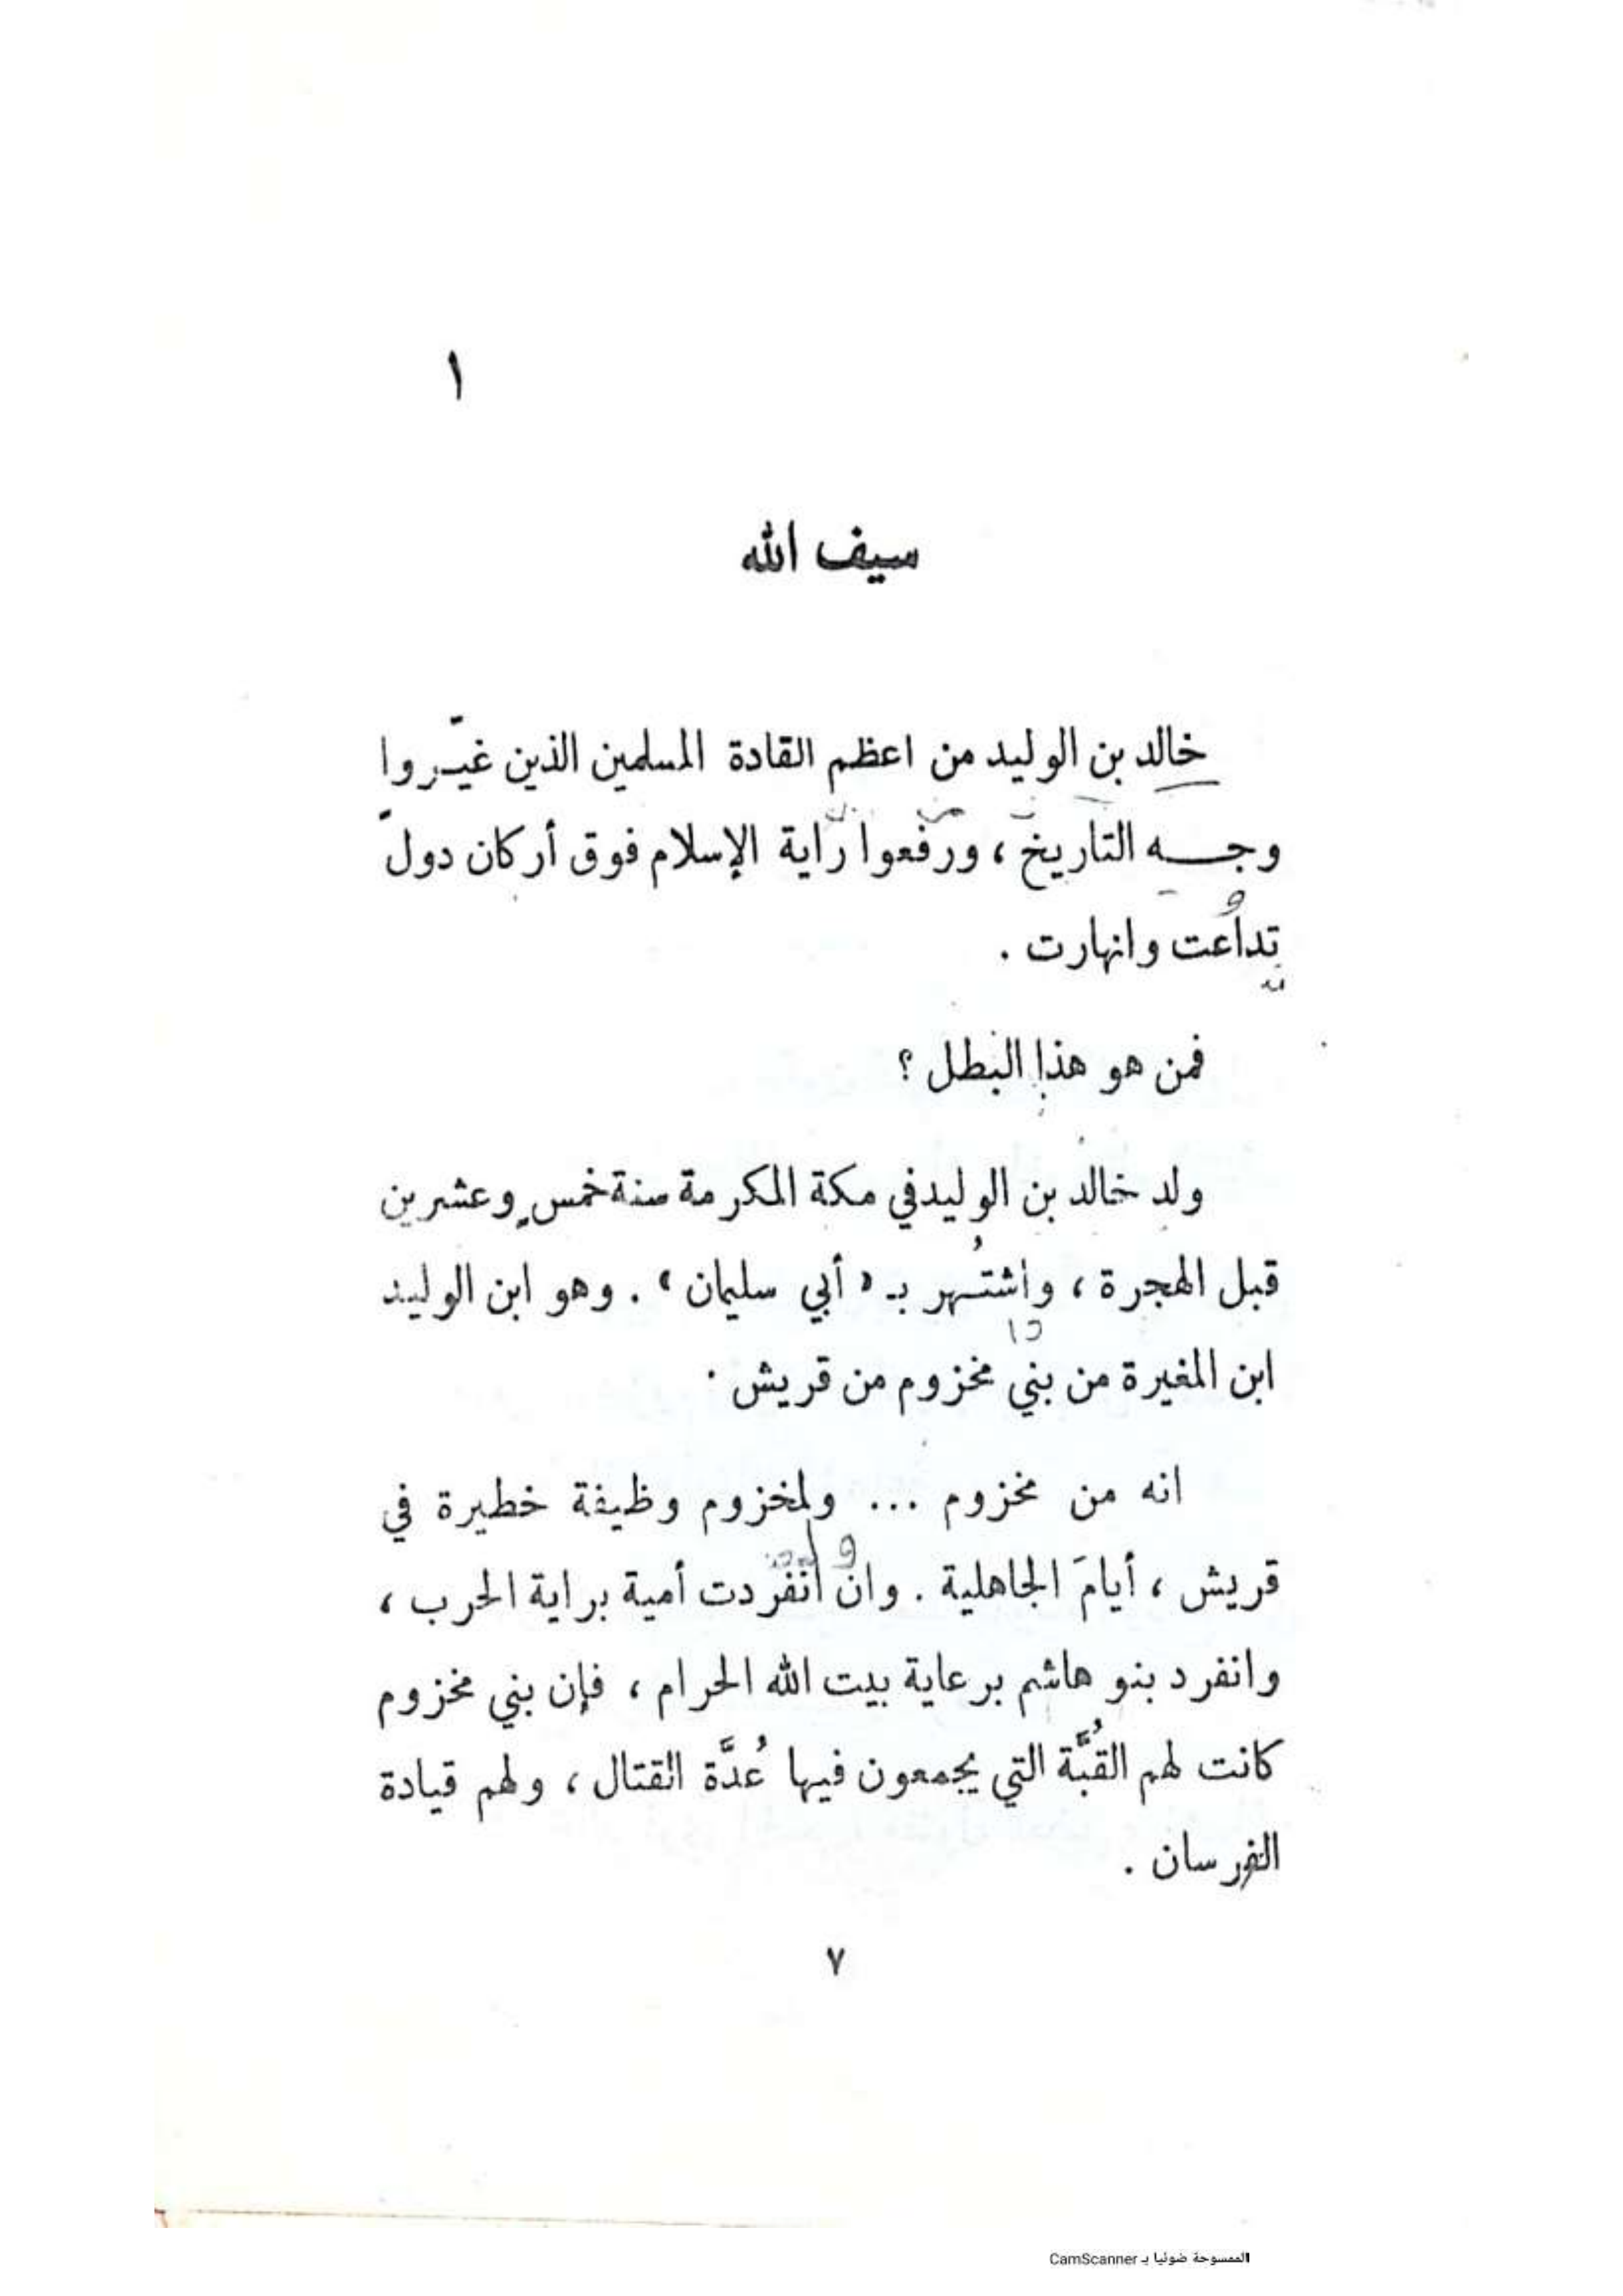 ١
سيف الله
خالد بن الوليد من اعظم القادة المسلمين الذين غيّروا
وجه التاريخ ، ورفعوا راية الإسلام فوق أركان دولّ
تداعت وانهارت .
فمن هو هذا البطل ؟
ولد خالد بن الوليد في مكة المكرمة سنة خمسٍ وعشرين
قبل الهجرة ، واشتُهر بـ « أبي سليمان » . وهو ابن الوليد
ابن المغيرة من بني مخزوم من قريش .
انه من مخزوم ... ولمخزوم وظيفة خطيرة في
قريش ، أيامَ الجاهلية . وان انفردت أمية براية الحرب ،
وانفرد بنو هاشم برعاية بيت الله الحرام ، فإن بني مخزوم
كانت لهم القُبَّة التي يجمعون فيها عُدَّة القتال ، ولهم قيادة
الفرسان .
٧
الممسوحة ضوئيا بـ CamScanner